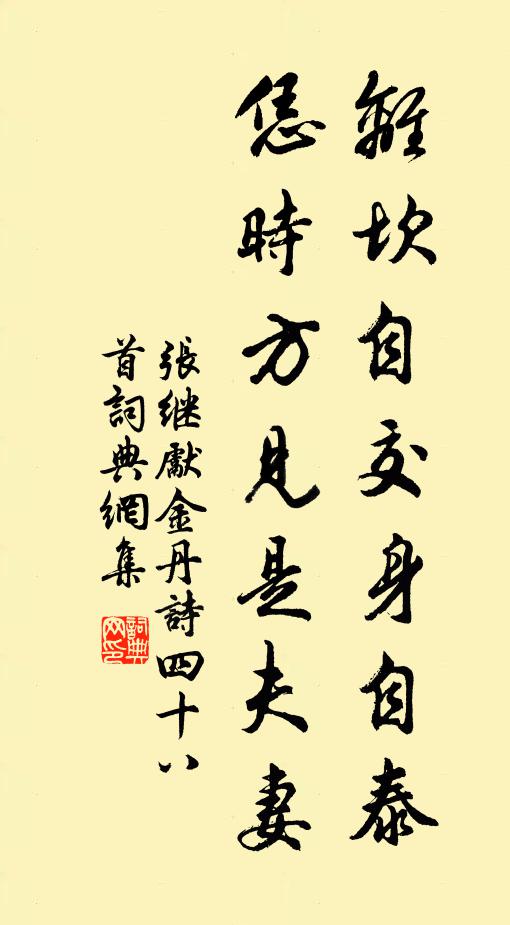 離坎自交身自泰
恁時方見是夫妻
張继獻金丹詩四十八
首詞典網集
詞典網印